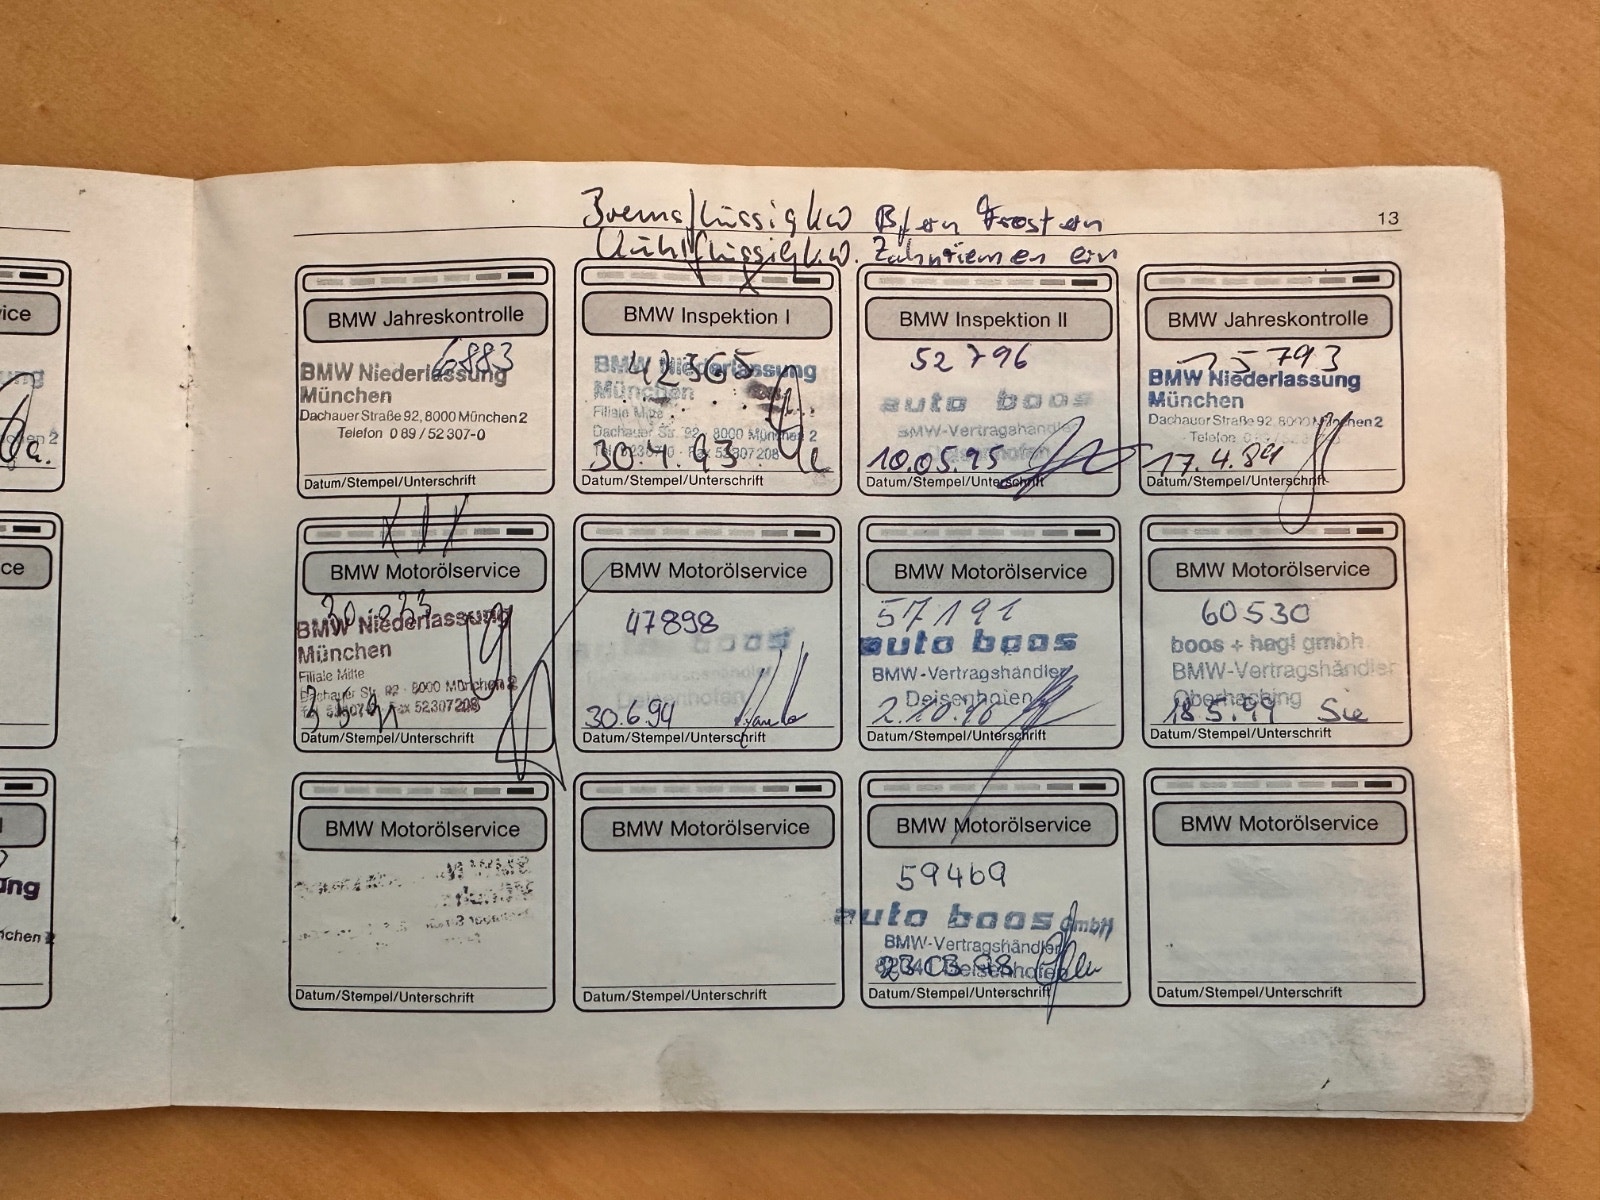 13
Kühlflüssigkw. Zahnriemen ein
BMW Jahreskontrolle
6883
BMW Niederlassung
München
Dachauer Straße 92, 8000 München 2
Telefon 0 89 / 52 307-0
Datum/Stempel/Unterschrift
BMW Inspektion I
42365
BMW Niederlassung
München
Filiale Mitte
Dachauer Str. 92 · 8000 München 2
Fax 52307208
30.4.93
Datum/Stempel/Unterschrift
BMW Inspektion II
52796
auto boos
BMW-Vertragshändler
Deisenhofen
10.05.95
Datum/Stempel/Unterschrift
BMW Jahreskontrolle
15793
BMW Niederlassung
München
Dachauer Straße 92, 8000 München 2
Telefon 0 89 / 52
17.4.89
Datum/Stempel/Unterschrift
BMW Motorölservice
BMW Niederlassung
München
Filiale Mitte
Dachauer Str. 92 · 8000 München 2
Fax 52307208
Datum/Stempel/Unterschrift
BMW Motorölservice
47898
auto boos
Deisenhofen
30.6.94
Datum/Stempel/Unterschrift
BMW Motorölservice
57191
auto boos
BMW-Vertragshändler
Deisenhofen
2.10.96
Datum/Stempel/Unterschrift
BMW Motorölservice
60530
boos + hagl gmbh
BMW-Vertragshändler
Oberhaching
18.5.99 Sie
Datum/Stempel/Unterschrift
BMW Motorölservice
Datum/Stempel/Unterschrift
BMW Motorölservice
Datum/Stempel/Unterschrift
BMW Motorölservice
59469
auto boos GmbH
BMW-Vertragshändler
Deisenhofen
23.03.98
Datum/Stempel/Unterschrift
BMW Motorölservice
Datum/Stempel/Unterschrift